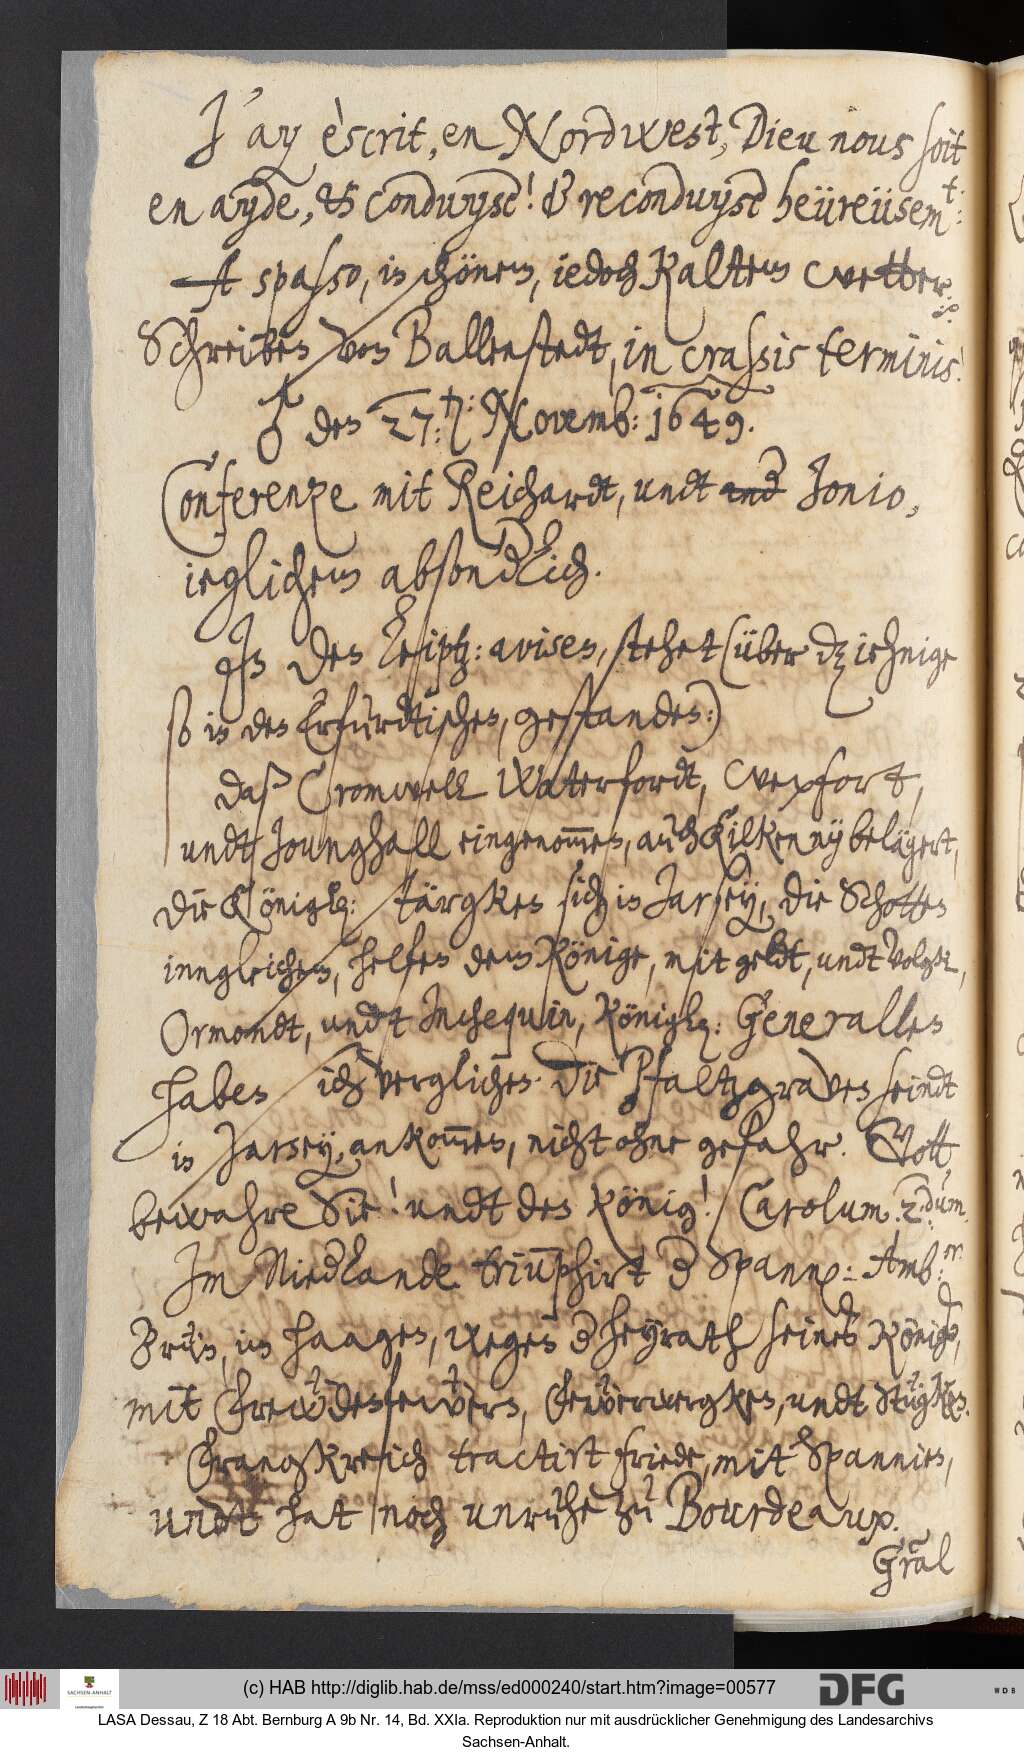 J'ay èscrit, en Nordwest, Dieu nous soit
en ayde, & conduyse! & reconduyse heüreüsem.t:
A spasso, in schönem, iedoch kaltem wetter.
Schreiben von Ballenstedt, in crassis terminis.
♂ den 27.: Novemb: 1649.
Conferentze mit Reichardt, undt and Jonio,
ieglichem absonderlich.
In den Leiptz: avisen, stehet (über dz iehnige
so in den Erfurdtischen, gestanden:)
daß Cromwell Waterfordt, Wexfort,
undt Jounghall eingenom̅en, auch Kilkenny belägert,
die Königl: stärgken sich in Jarsey, die Schotten
inngleichem, helfen dem Könige, mit geldt, undt volgk,
Ormondt, undt Inchequin, Königl: Generalles
haben sich verglichen. Die Pfaltzgraven seindt
in Jarsey, ankom̅en, nicht ohne gefahr. Gott
bewahre Sie! undt den König! Carolum 2.dum.
Im Niederlande triumphirt der Spann: Amb:r.
Brun, im Haagen, wegen der heyrath seines Königs,
mit Frewdenfewern, Fewerwergken, undt Stügken.
Frangkreich tractirt friede, mit Spannien,
undt hat noch unruhe zu Bourdeaux.
Gral
(c) HAB http://diglib.hab.de/mss/ed000240/start.htm?image=00577
SACHSEN-ANHALT
DFG
WDB
LASA Dessau, Z 18 Abt. Bernburg A 9b Nr. 14, Bd. XXIa. Reproduktion nur mit ausdrücklicher Genehmigung des Landesarchivs
Sachsen-Anhalt.